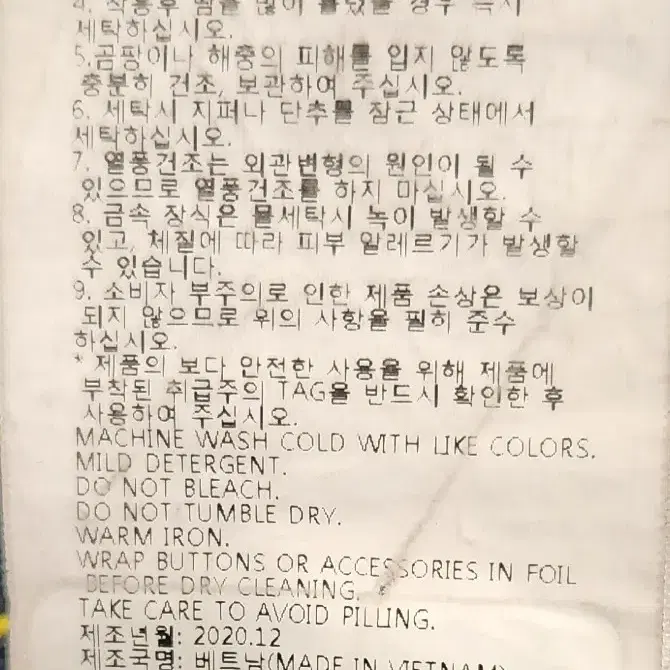 4. 착용후 땀을 많이 흘렸을 경우 즉시
세탁하십시오.
5.곰팡이나 해충의 피해를 입지 않도록
충분히 건조, 보관하여 주십시오.
6. 세탁시 지퍼나 단추를 잠근 상태에서
세탁하십시오.
7. 열풍건조는 외관변형의 원인이 될 수
있으므로 열풍건조를 하지 마십시오.
8. 금속 장식은 물세탁시 녹이 발생할 수
있고, 체질에 따라 피부 알레르기가 발생할
수 있습니다.
9. 소비자 부주의로 인한 제품 손상은 보상이
되지 않으므로 위의 사항을 필히 준수
하십시오.
* 제품의 보다 안전한 사용을 위해 제품에
부착된 취급주의 TAG을 반드시 확인한 후
사용하여 주십시오.
MACHINE WASH COLD WITH LIKE COLORS.
MILD DETERGENT.
DO NOT BLEACH.
DO NOT TUMBLE DRY.
WARM IRON.
WRAP BUTTONS OR ACCESSORIES IN FOIL
BEFORE DRY CLEANING.
TAKE CARE TO AVOID PILLING.
제조년월: 2020.12
제조국명: 베트남(MADE IN VIETNAM)